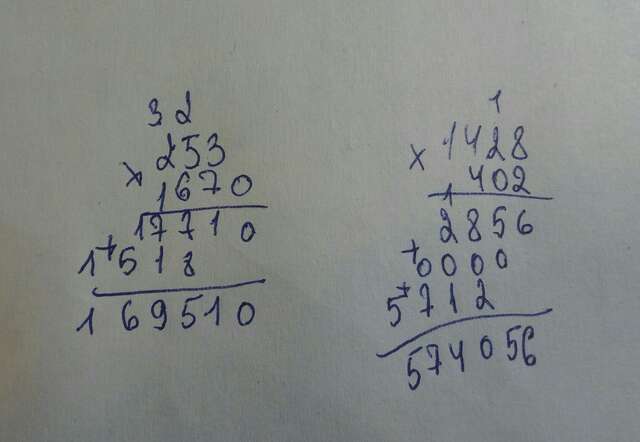 3 2
253
× 1670
17710
+
1518
169510
1
1428
× 402
1
2856
+
0000
+
5712
574056